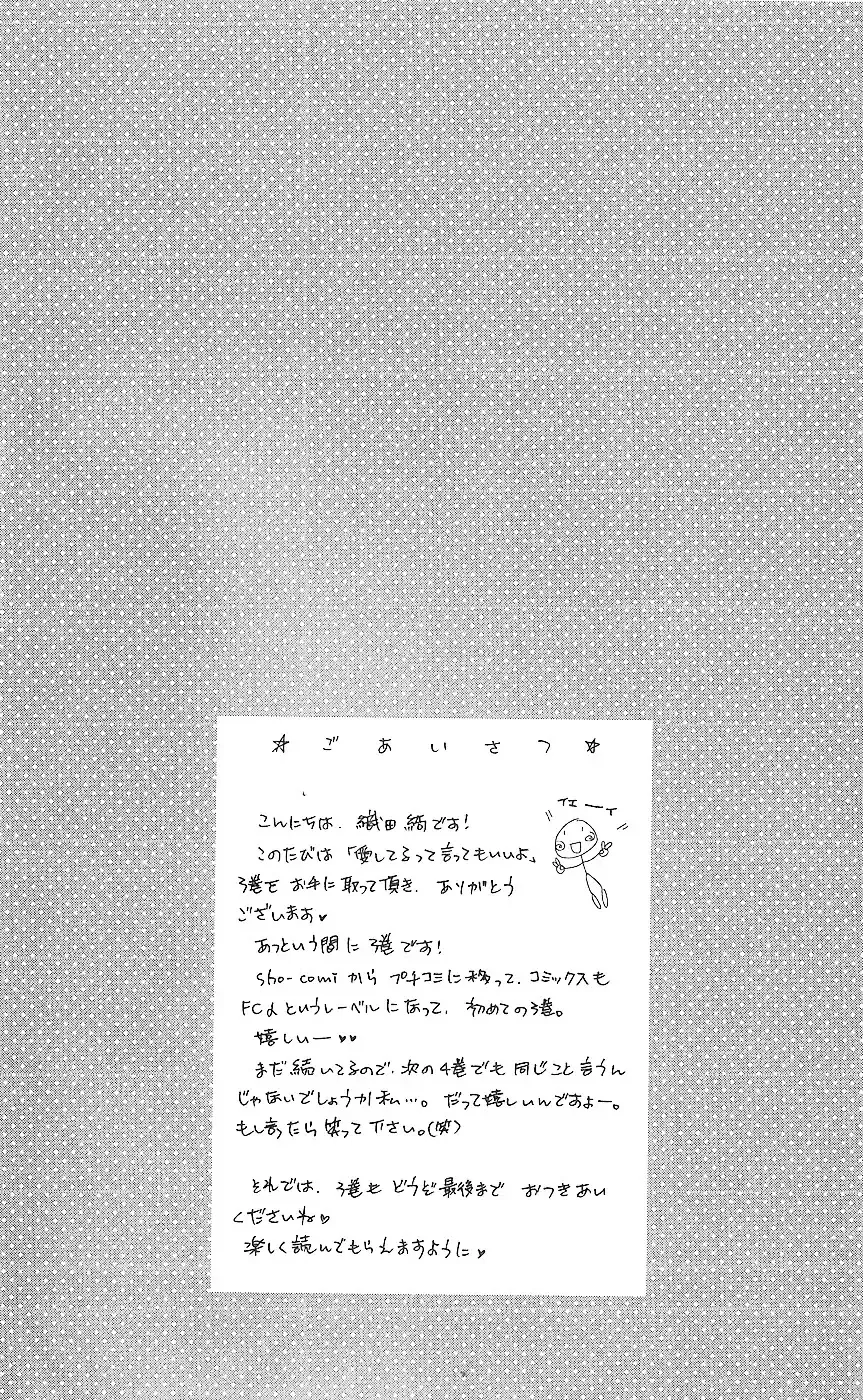 ☆ ごあいさつ ☆
イエーイ
こんにちは、織田綺です!
このたびは「愛してるって言ってもいいよ」
3巻を お手に取って頂き、ありがとう
ございます♥
あっという間に 3巻です!
Sho-comiから プチコミに移って、コミックスも
FCαというレーベルになって、初めての3巻。
嬉しいー♥♥
まだ続いてるので、次の4巻でも 同じこと言うん
じゃないでしょうか私…。だって嬉しいんですよー。
もし言ったら 笑って下さい。(笑)
それでは、3巻も どうぞ最後まで おつきあい
くださいね♥
楽しく読んでもらえますように♥